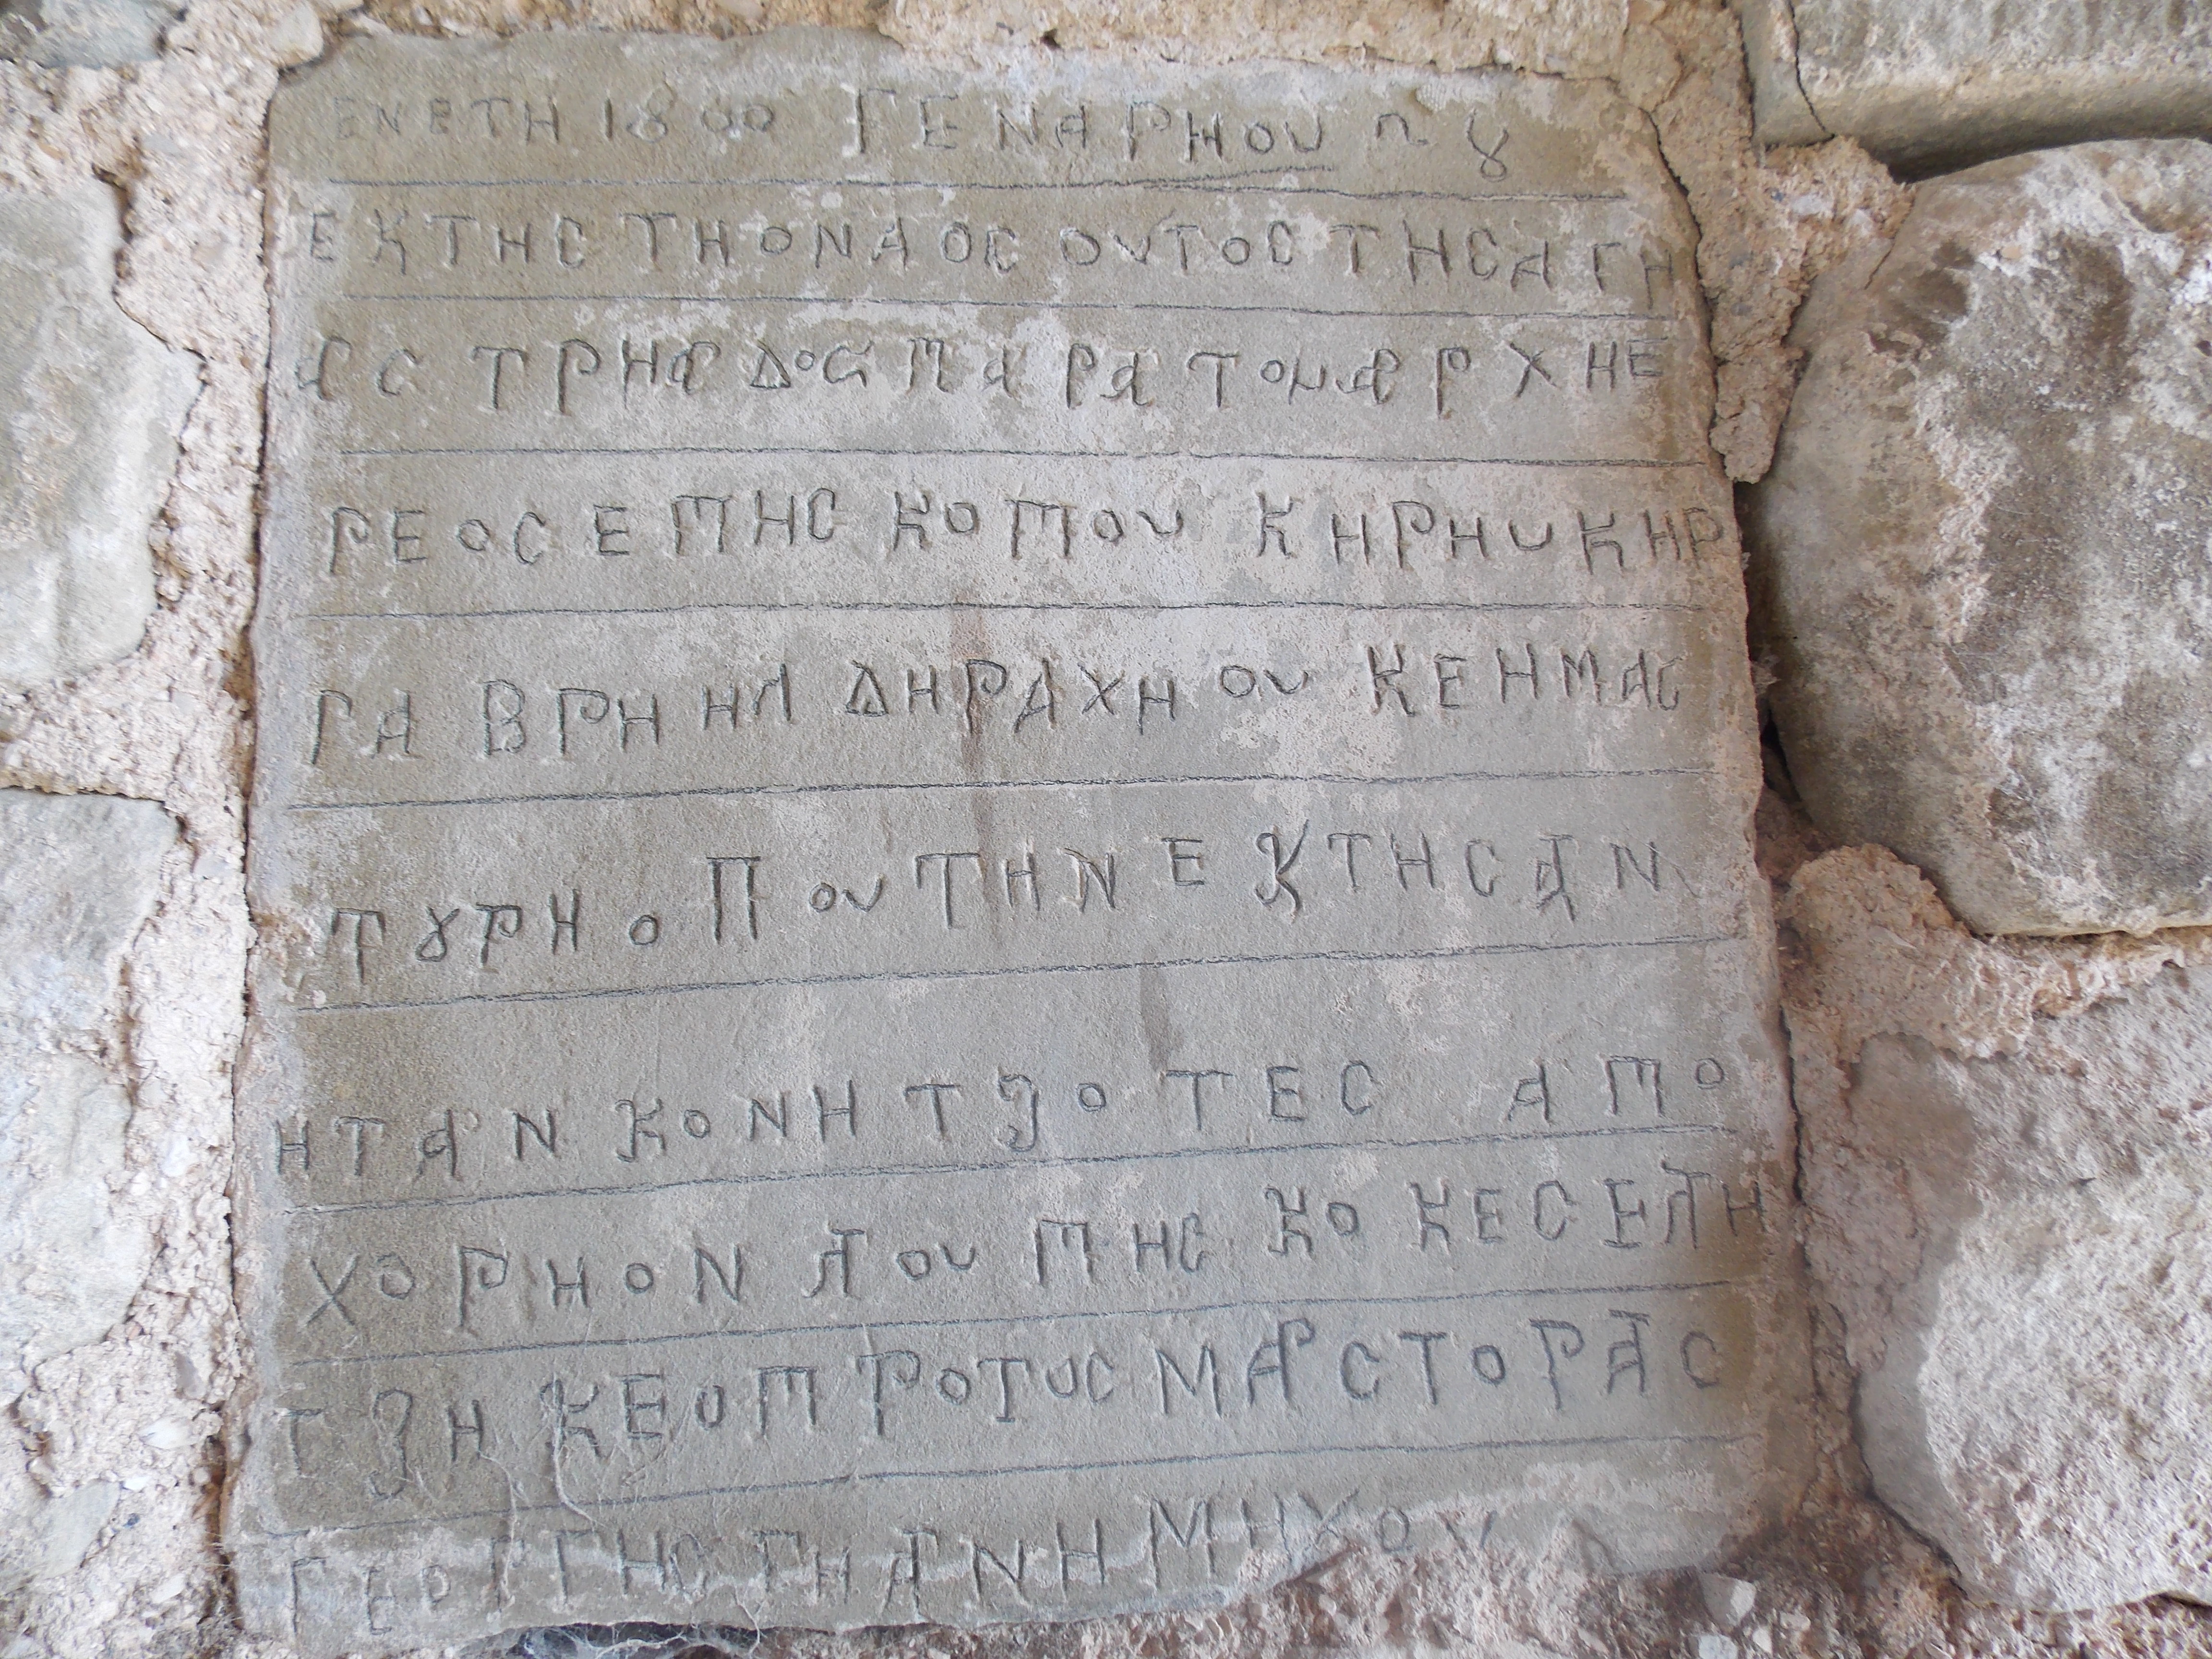 ΕΝΕΤΗ 1800 ΓΕΝΑΡΗΟΥ
ΕΚΤΗСΤΗΟΝΑΟС ΟΥΤΟСΤΗСΑΓΗ
ΑС ΤΡΗΑΔΟС ΠΑΡΑ ΤΟΝΑΡΧΗΕ
ΡΕΟС ΕΠΗСΚΟΠΟΥ ΚΗΡΗΥΚΗΡ
ΓΑΒΡΗΗΛ ΔΗΡΑΧΗΟΥ ΚΕΗΜΑС
ΤȢΡΗΟΠΟΥ ΤΗΝΕΚΤΗСΑΝ
ΗΤΑΝ ΚΟΝΗΤΖΟΤΕС ΑΠΟ
ΧΟΡΗΟΝ ΛΟΥΠΗСΚΟ ΚΕСΕΛΤΗ
ΤΖΗ ΚΕΟΠΡΟΤΟС ΜΑСΤΟΡΑС
ΓΕΟΡΓΗС ΓΗΑΝΗ ΜΗΧΟΥ